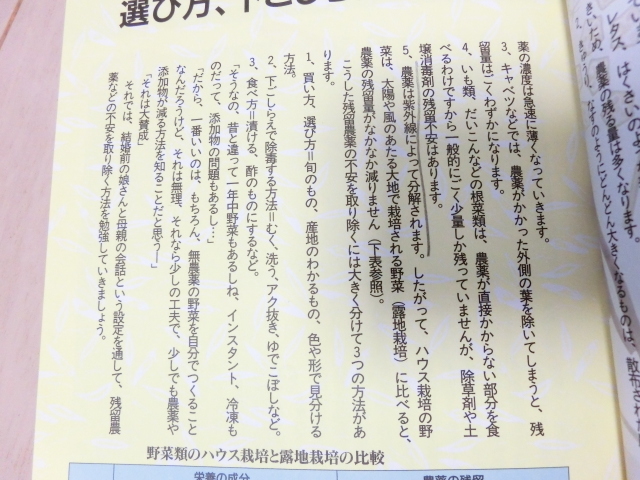 選び方、下ごしら
さいため、農薬の残る量は多くなります。
2、きゅうり、なすのようにどんどん大きくなるものは、散布された
薬の濃度は急速に薄くなっていきます。
3、キャベツなどでは、農薬がかかった外側の葉を除いてしまうと、残
留量はごくわずかになります。
4、いも類、だいこんなどの根菜類は、農薬が直接かからない部分を食
べるわけですから一般的にごく少量しか残っていませんが、除草剤や土
壌消毒剤の残留不安はあります。
5、農薬は紫外線によって分解されます。したがって、ハウス栽培の野
菜は、太陽や風のあたる大地で栽培される野菜（露地栽培）に比べると、
農薬の残留量がなかなか減りません（下表参照）。
こうした残留農薬の不安を取り除くには大きく分けて3つの方法があ
ります。
1、買い方、選び方＝旬のもの、産地のわかるもの、色や形で見分ける
方法。
2、下ごしらえで除毒する方法＝むく、洗う、アク抜き、ゆでこぼしなど。
3、食べ方＝漬ける、酢のものにするなど。
「そうなの、昔と違って一年中野菜もあるしね、インスタント、冷凍も
のだって、添加物の問題もあるし…」
「だから、一番いいのは、もちろん、無農薬の野菜を自分でつくること
なんだろうけど、それは無理、それなら少しの工夫で、少しでも農薬や
添加物が減る方法を知ることだと思う―」
「それは大賛成」
それでは、結婚前の娘さんと母親の会話という設定を通して、残留農
薬などの不安を取り除く方法を勉強していきましょう。
野菜類のハウス栽培と露地栽培の比較
栄養の成分
農薬の残留